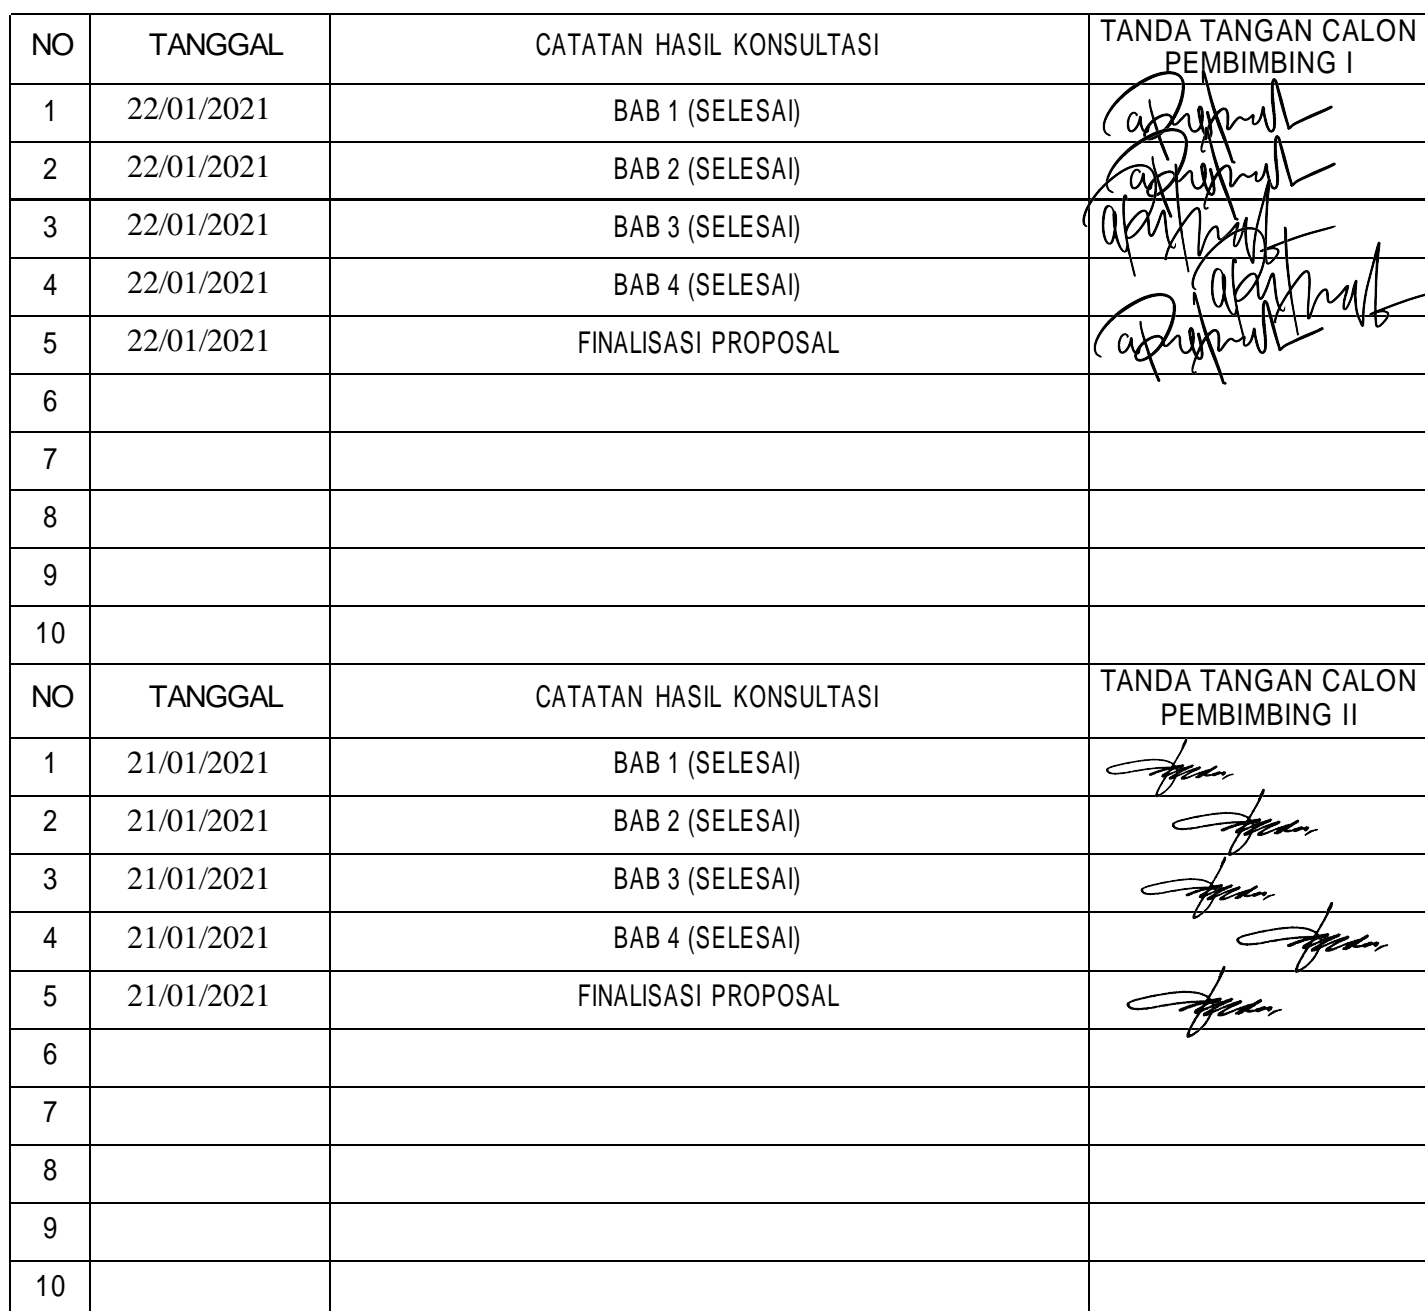 NO TANGGAL CATATAN HASIL KONSULTASI TANDA TANGAN CALON
PEMBIMBING I
1 22/01/2021 BAB 1 (SELESAI)
2 22/01/2021 BAB 2 (SELESAI)
3 22/01/2021 BAB 3 (SELESAI)
4 22/01/2021 BAB 4 (SELESAI)
5 22/01/2021 FINALISASI PROPOSAL
6
7
8
9
10
NO TANGGAL CATATAN HASIL KONSULTASI TANDA TANGAN CALON
PEMBIMBING II
1 21/01/2021 BAB 1 (SELESAI)
2 21/01/2021 BAB 2 (SELESAI)
3 21/01/2021 BAB 3 (SELESAI)
4 21/01/2021 BAB 4 (SELESAI)
5 21/01/2021 FINALISASI PROPOSAL
6
7
8
9
10